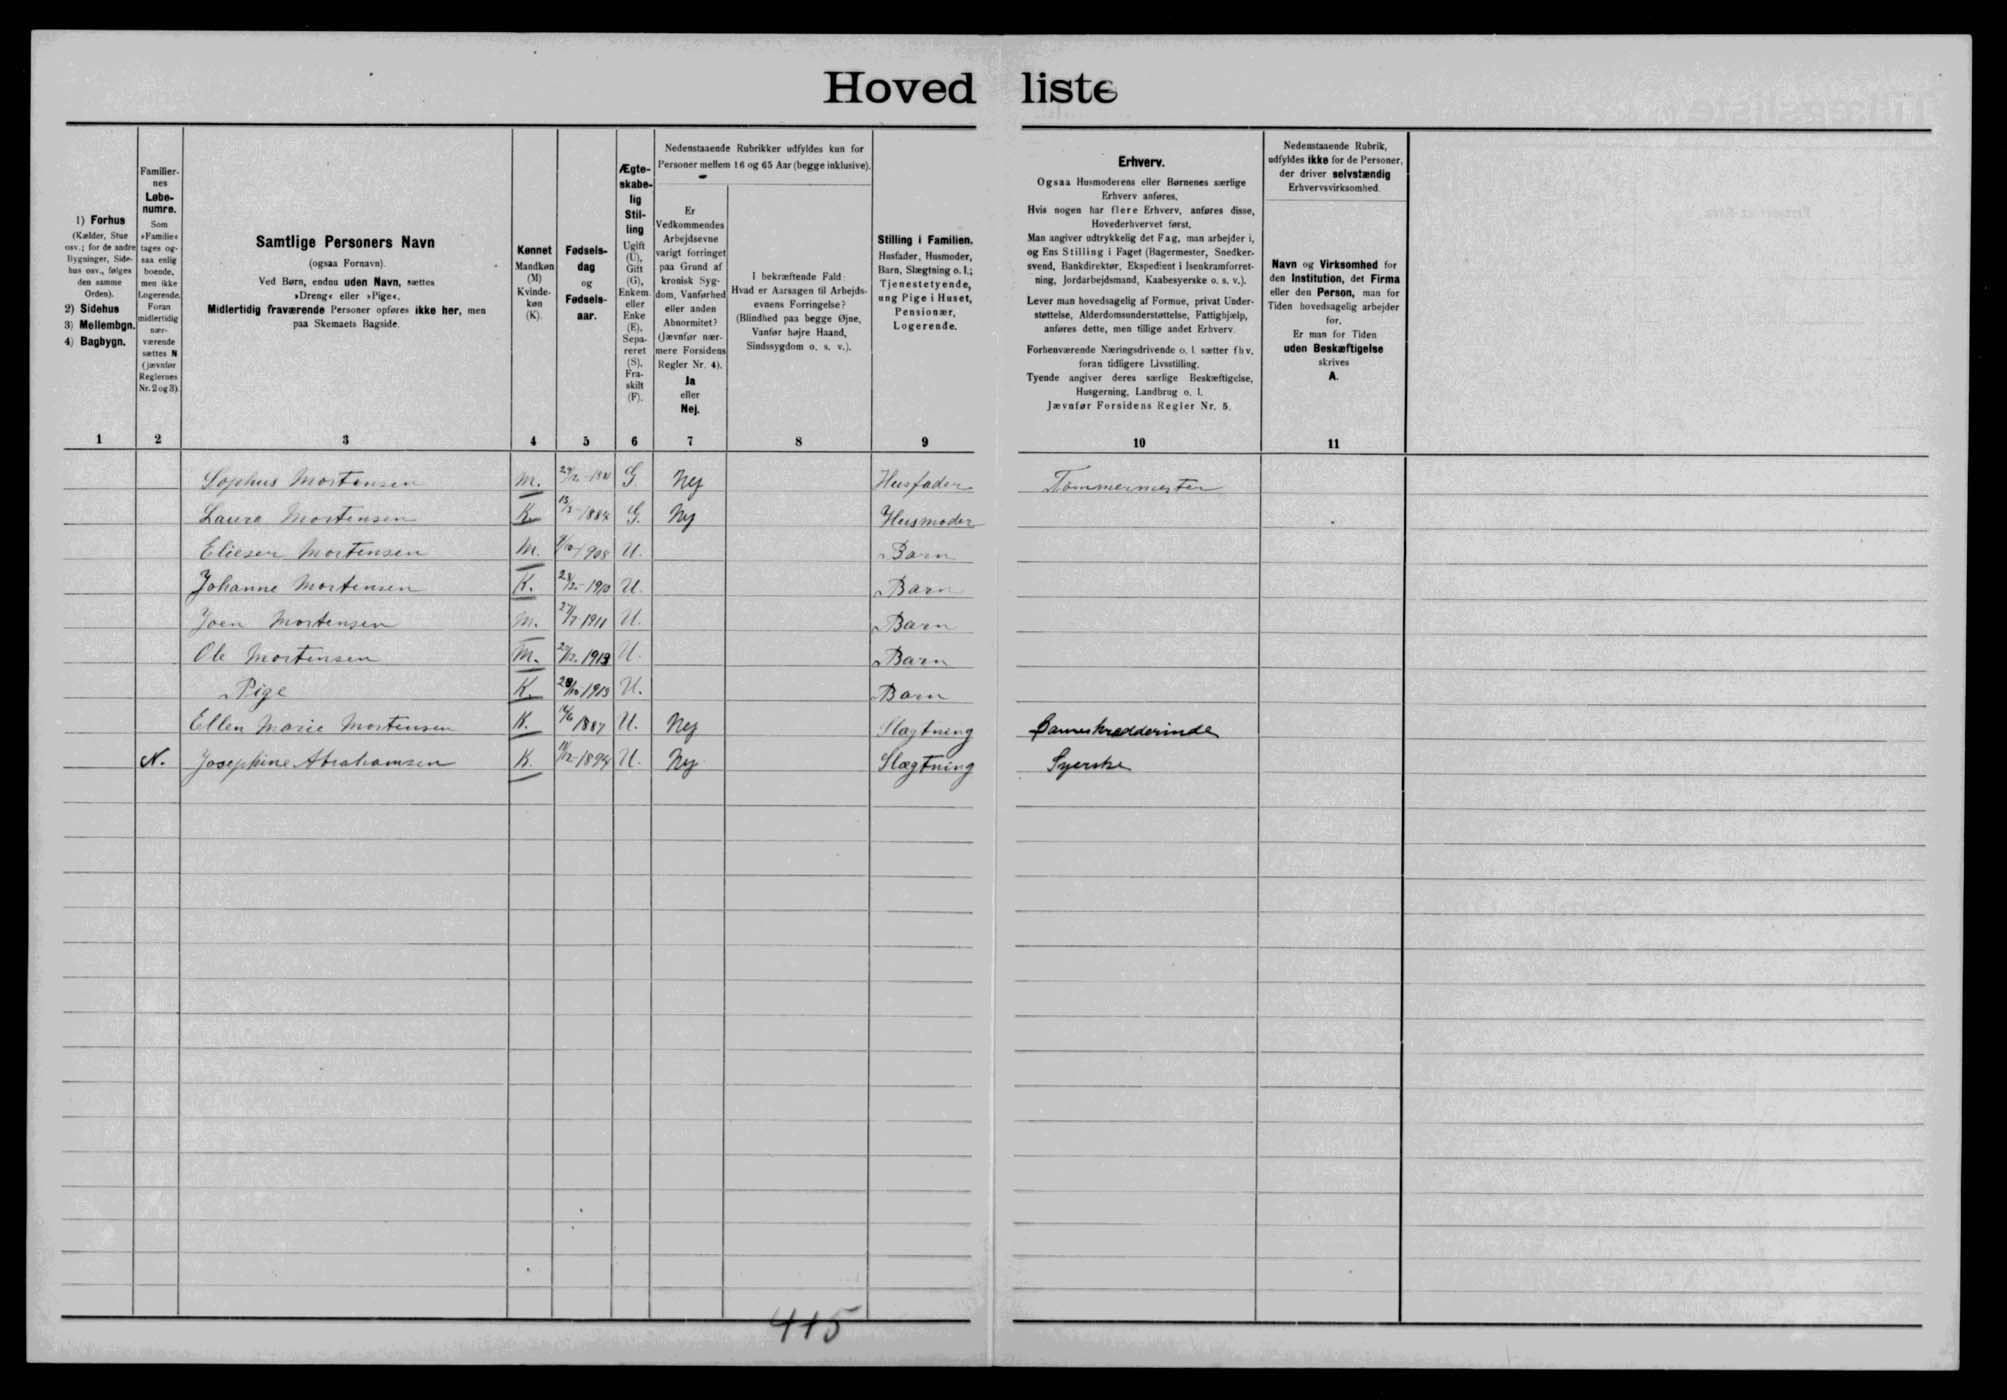 Hovedliste
1) Forhus
(Kælder, Stue
osv.; for de andre
Bygninger, Side-
hus osv., følges
den samme
Orden).
2) Sidehus
3) Mellembgn.
4) Bagbygn.
Familier-
nes
Løbe-
numre.
Som
»Familie«
tages og-
saa enlig
boende,
men ikke
Logerende.
Foran
midlertidig
nær-
værende
sættes N
(jævnfør
Reglernes
Nr. 2 og 3).
Samtlige Personers Navn
(ogsaa Fornavn).
Ved Børn, endnu uden Navn, sættes
»Dreng« eller »Pige«.
Midlertidig fraværende Personer opføres ikke her, men
paa Skemaets Bagside.
Kønnet
Mandkøn
(M)
Kvinde-
køn
(K).
Fødsels-
dag
og
Fødsels-
aar.
Ægte-
skabe-
lig
Stil-
ling
Ugift
(U),
Gift
(G),
Enkem.
eller
Enke
(E),
Sepa-
reret
(S),
Fra-
skilt
(F).
Nedenstaaende Rubrikker udfyldes kun for
Personer mellem 16 og 65 Aar (begge inklusive).
Er
Vedkommendes
Arbejdsevne
varigt forringet
paa Grund af
kronisk Syg-
dom, Vanførhed
eller anden
Abnormitet?
(Jævnfør nær-
mere Forsidens
Regler Nr. 4).
Ja
eller
Nej.
I bekræftende Fald:
Hvad er Aarsagen til Arbejds-
evnens Forringelse?
(Blindhed paa begge Øjne,
Vanfør højre Haand,
Sindssygdom o. s. v.).
Stilling i Familien.
Husfader, Husmoder,
Barn, Slægtning o. l.;
Tjenestetyende,
ung Pige i Huset,
Pensionær,
Logerende.
Erhverv.
Ogsaa Husmoderens eller Børnenes særlige
Erhverv anføres.
Hvis nogen har flere Erhverv, anføres disse,
Hovederhvervet først.
Man angiver udtrykkelig det Fag, man arbejder i,
og Ens Stilling i Faget (Bagermester, Snedker-
svend, Bankdirektør, Ekspedient i Isenkramforret-
ning, Jordarbejdsmand, Kaabesyerske o. s. v.).
Lever man hovedsagelig af Formue, privat Under-
støttelse, Alderdomsunderstøttelse, Fattighjælp,
anføres dette, men tillige andet Erhverv.
Forhenværende Næringsdrivende o. l. sætter fhv.
foran tidligere Livsstilling.
Tyende angiver deres særlige Beskæftigelse,
Husgerning, Landbrug o. l.
Jævnfør Forsidens Regler Nr. 5.
Nedenstaaende Rubrik,
udfyldes ikke for de Personer,
der driver selvstændig
Erhvervsvirksomhed.
Navn og Virksomhed for
den Institution, det Firma
eller den Person, man for
Tiden hovedsagelig arbejder
for.
Er man for Tiden
uden Beskæftigelse
skrives
A.
1 2 3 4 5 6 7 8 9 10 11
Sophus Mortensen M. G. Nej Husfader Tømmermester
Laura Mortensen K. 1884 G. Nej Husmoder
Elieser Mortensen M. 1908 U. Barn
Johanne Mortensen K. 1910 U. Barn
Joen Mortensen M. 27/7 1911 U. Barn
Ole Mortensen M. 1912 U. Barn
Pige K. 1915 U. Barn
Ellen Marie Mortensen K. 1887 U. Nej Slægtning Dameskrædderinde
N. Josephine Abrahamsen K. 1894 U. Nej Slægtning Syerske
415